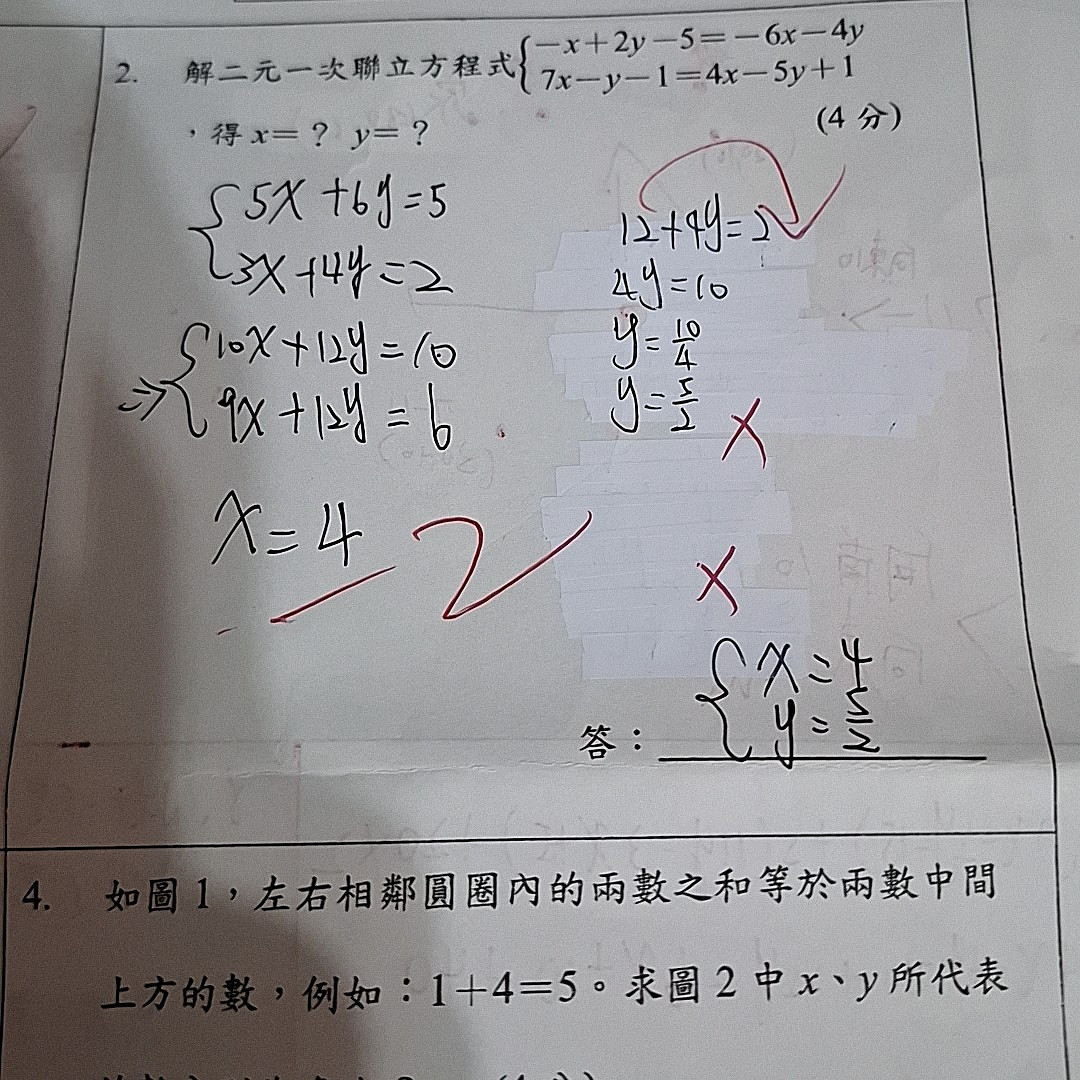 2. 解二元一次聯立方程式{−x+2y−5=−6x−4y
7x−y−1=4x−5y+1
(4分)
，得 x=？ y=？
{5x+6y=5
3x+4y=2
⇒{10x+12y=10
9x+12y=6
x=4
2
12+4y=2
4y=10
y=10/4
y=5/2
×
×
答：{x=4
y=5/2
4. 如圖1，左右相鄰圓圈內的兩數之和等於兩數中間
上方的數，例如：1+4=5。求圖2中 x、y 所代表